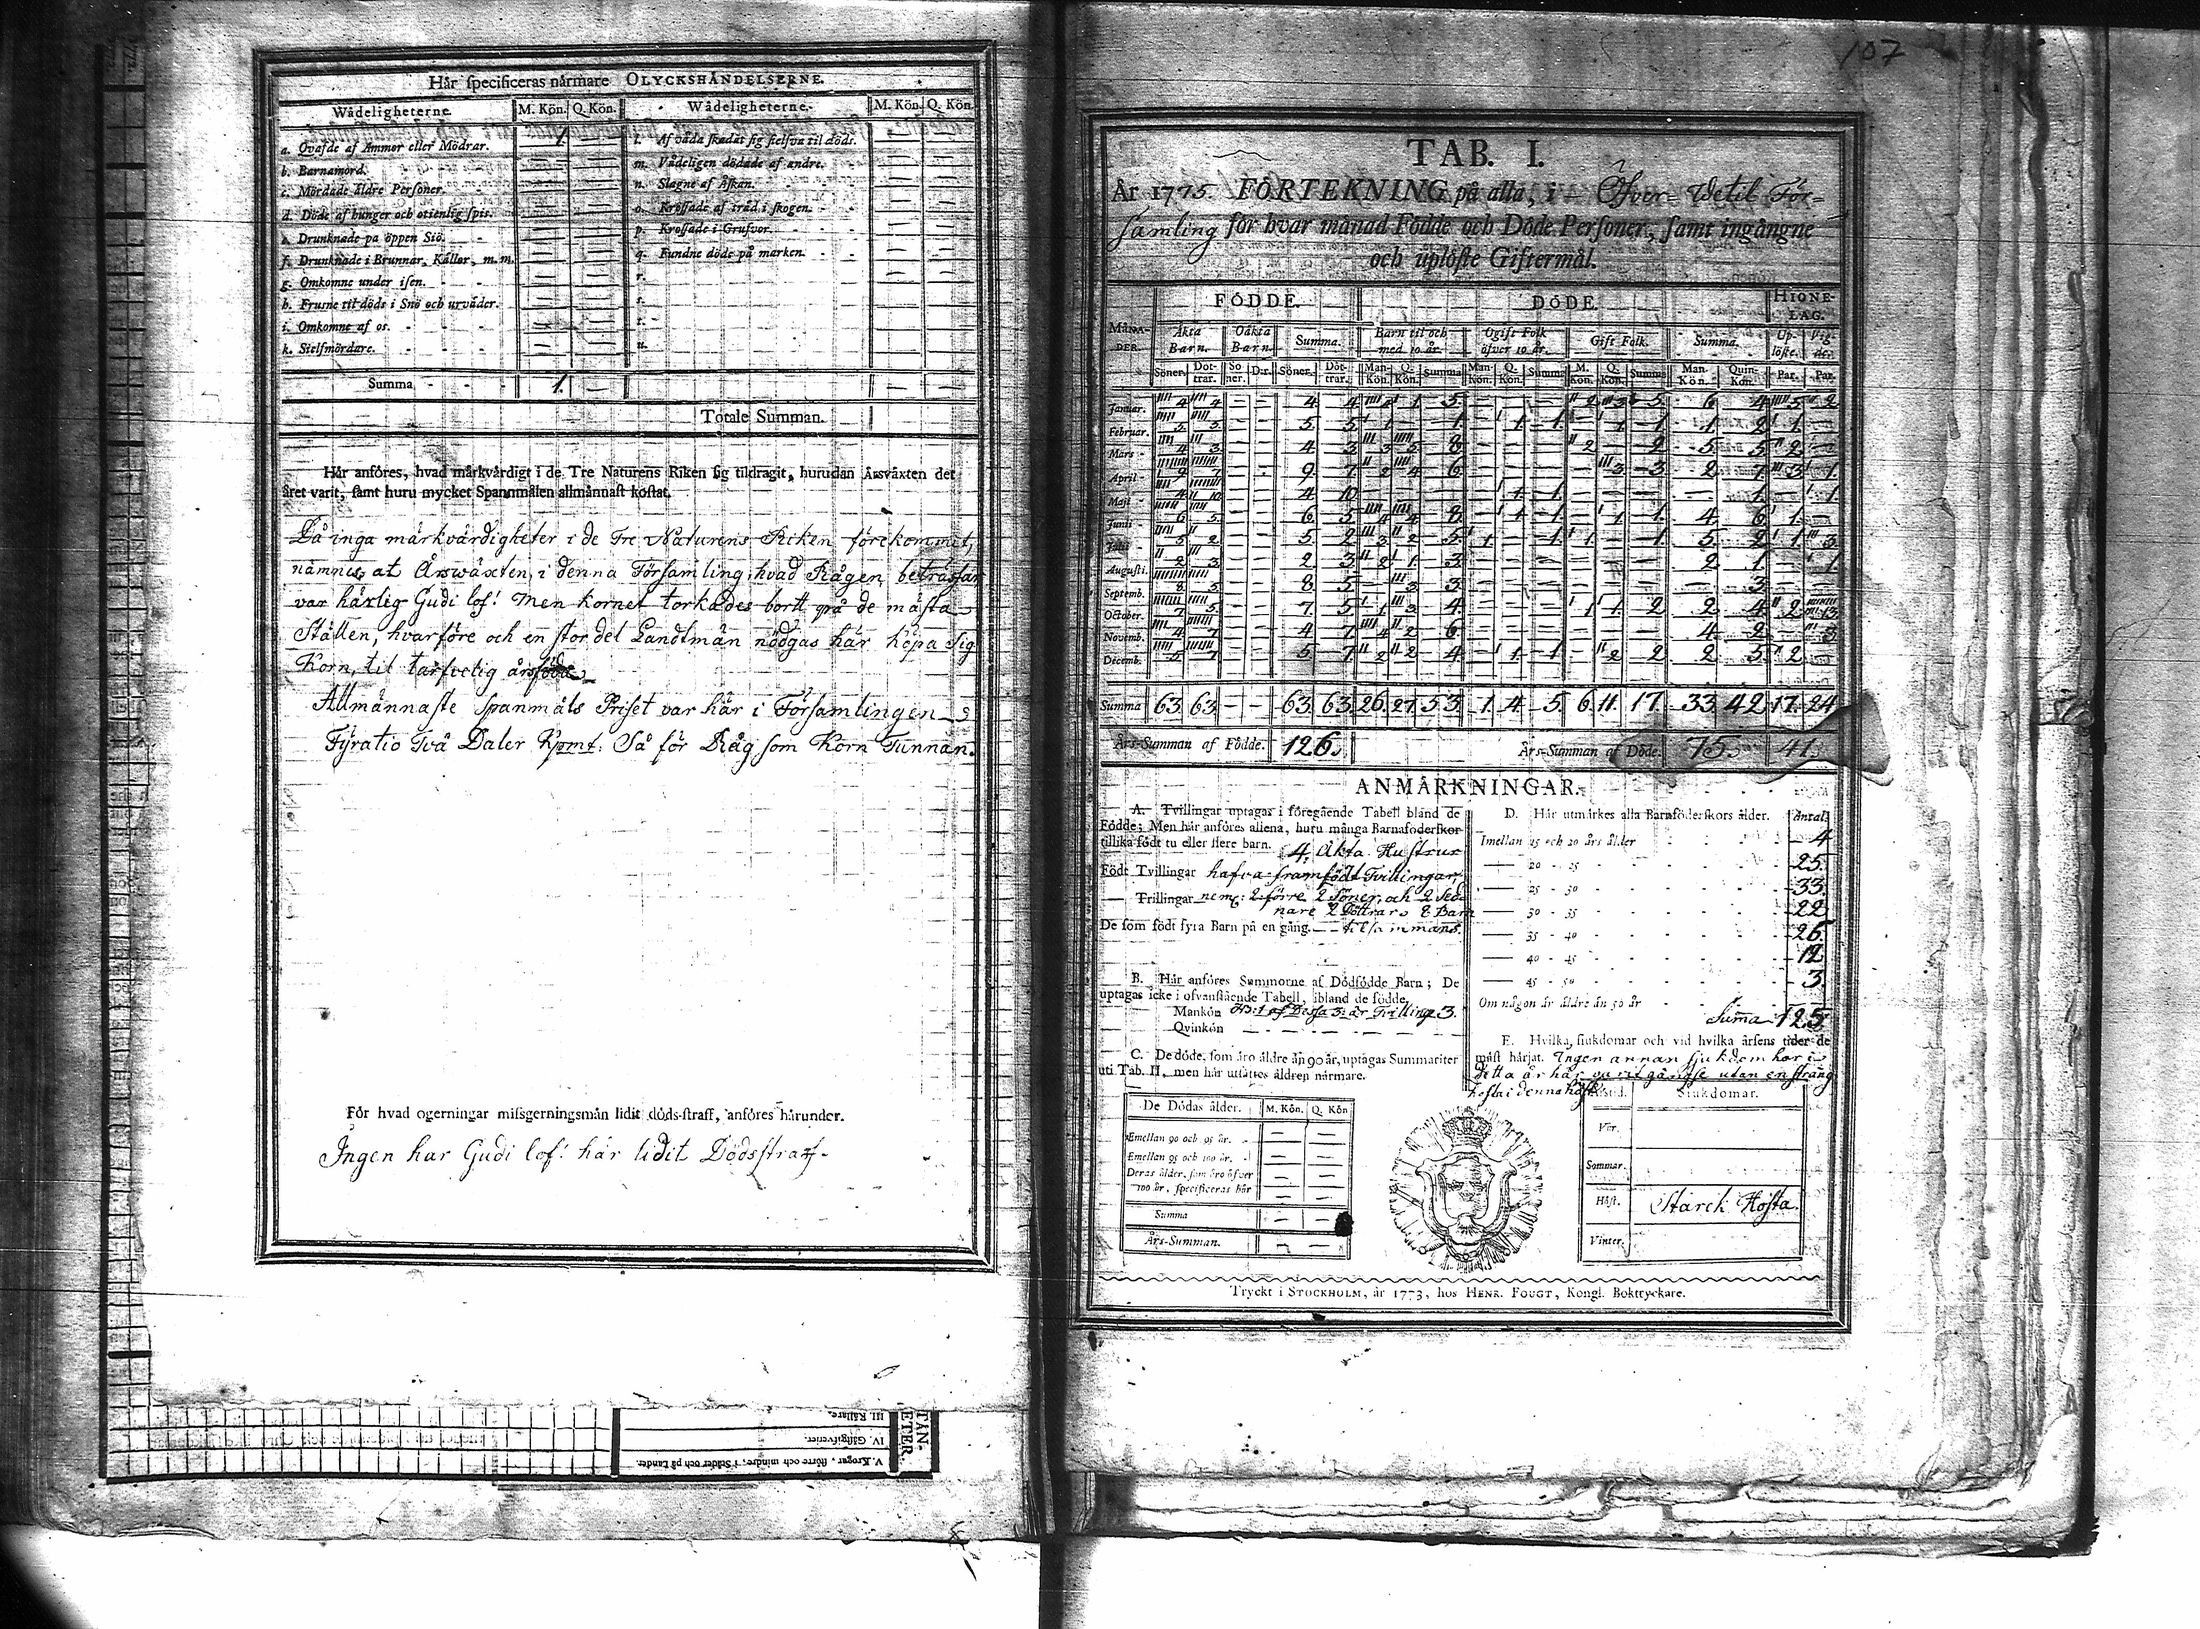 Här specificeras närmare OLYCKSHÄNDELSERNE.
Wådeligheterne. M. Kön. Q. Kön. Wådeligheterne. M. Kön. Q. Kön.
a. Qvafde af Ammor eller Mödrar. 1. — l. Af våda skadat sig sielfva til döds. — —
b. Barnamord. — — m. Vådeligen dödade af andre. — —
c. Mördade äldre Personer. — — n. Slagne af Åskan. — —
d. Döde af hunger och otienlig spis. — — o. Krossade af träd i skogen. — —
e. Drunknade på öppen Siö. — — p. Krossade i Grufvor. — —
f. Drunknade i Brunnar, Källor, m. m. — — q. Fundne döde på marken. — —
g. Omkomne under isen. — — r. — —
h. Frusne til döds i Snö och urväder. — — s. — —
i. Omkomne af os. — — t. — —
k. Sielfmördare. — — u. — —
Summa 1. —
Totale Summan.
Här anföres, hvad märkvärdigt i de Tre Naturens Riken sig tildragit, hurudan Årsväxten det
året varit, samt huru mycket Spannmålen allmännast kostat.
Då inga märkvärdigheter i de Tre Naturens Riken förekommit,
nämnes, at Årswäxten, i denna Församling, hvad Rågen beträffar
var härlig Gudi lof! Men kornet torkades bortt på de mästa
Ställen, hvarföre och en stor del Landtmän nödgas här köpa sig
Korn, til tarfvelig årsföda.
Allmännaste Spanmåls Priset var här i Församlingen
Fyratio Två Daler Kpmt: Så för Råg som Korn Tunnan.
För hvad ogerningar missgerningsmän lidit döds-straff, anföres härunder.
Ingen har Gudi lof! här lidit Dödsstraff.
TÅN-
ETER.
III. Källare.
IV. Gästgifverier.
V. Krogar, större och mindre, i Städer och på Landet.
107
TAB. I.
År 1775. FÖRTEKNING på alla, i Öfver-Wetil För-
samling för hvar månad Födde och Döde Personer, samt ingångne
och uplöste Giftermål.
FÖDDE. DÖDE. HIONE-LAG.
MÅNA-DER. Äkta Barn. Oäkta Barn. Summa. Barn til och med 10 år. Ogift Folk öfver 10 år. Gift Folk. Summa. Up-löste. Vig-de.
Söner. Döt-trar. Sö-ner. D:r. Söner. Döt-trar. Man-Kön. Q. Kön. Summa Man-Kön. Q. Kön. Summa M. Kön. Q. Kön. Summa Man-Kön. Quin-Kön. Par. Par.
Januar. 4 4 — — 4 4 4 1 5 — — — 2 3 5 6 4 5 2
Februar. 5 5 — — 5 5 1 — 1 — 1 1 — 1 1 1 2 1 —
Mars 4 3 — — 4 3 3 5 8 — — — 2 — 2 5 5 2 —
April 9 7 — — 9 7 2 4 6 — — — — 3 3 2 7 3 1
Maji 4 10 — — 4 10 — — — — 1 1 — — — — 1 — 1
Junii 6 5 — — 6 5 4 4 8 — 1 1 — 1 1 4 6 1 —
Julii 5 2 — — 5 2 3 2 5 1 — 1 1 — 1 5 2 1 3
Augusti. 2 3 — — 2 3 2 1 3 — — — — — — 2 1 — 1
Septemb. 8 5 — — 8 5 — 3 3 — — — — — — — 3 — —
October. 7 5 — — 7 5 1 3 4 — — — 1 1 2 2 4 2 13
Novemb. 4 7 — — 4 7 4 2 6 — — — — — — 4 2 — 3
Decemb. 5 7 — — 5 7 2 2 4 — 1 1 — 2 2 2 5 2 —
Summa 63 63 — — 63 63 26 27 53 1 4 5 6 11 17 33 42 17 24
Års-Summan af Födde. 126. Års-Summan af Döde. 75. 41
ANMÄRKNINGAR.
A. Tvillingar uptagas i föregående Tabell bland de
Födde; Men här anföres allena, huru många Barnaföderskor
tillika födt tu eller flere barn. 4. Äkta Hustrur
Födt Tvillingar hafva framfödt Tvillingar,
— Trillingar nemℓ: 2 förre 2 Söner, och 2 Sed-
nare 2 Döttrar 8 Barn
De som födt fyra Barn på en gång. — tilsammans.
B. Här anföres Summorne af Dödfödde Barn; De
uptagas icke i ofvanstående Tabell, ibland de födde.
Mankön NB: 1 af Dessa 3: är Tvilling 3.
Qvinkön — — —
C. De döde, som äro äldre än 90 år, uptagas Summariter
uti Tab. II, men här utsättes åldren närmare.
De Dödas ålder. M. Kön. Q. Kön
Emellan 90 och 95 år. — —
Emellan 95 och 100 år. — —
Deras ålder, som äro öfver — —
100 år, specificeras här — —
Summa — —
Års-Summan. — —
D. Här utmärkes alla Barnföderskors ålder. Antal.
Imellan 15 och 20 års ålder 4
— 20 - 25 25.
— 25 - 30 33.
— 30 - 35 22
— 35 - 40 26.
— 40 - 45 12
— 45 - 50 3.
Om någon är äldre än 50 år
Summa 125.
E. Hvilka siukdomar och vid hvilka årsens tider de
mäst härjat. Ingen annan Sjukdom har i
detta år här varit gängse utan en sträng
hosta i denna höst
Årstid. Siukdomar.
Vår.
Sommar.
Höst. Starck Hosta.
Vinter.
Tryckt i STOCKHOLM, år 1773, hos HENR. FOUGT, Kongl. Boktryckare.